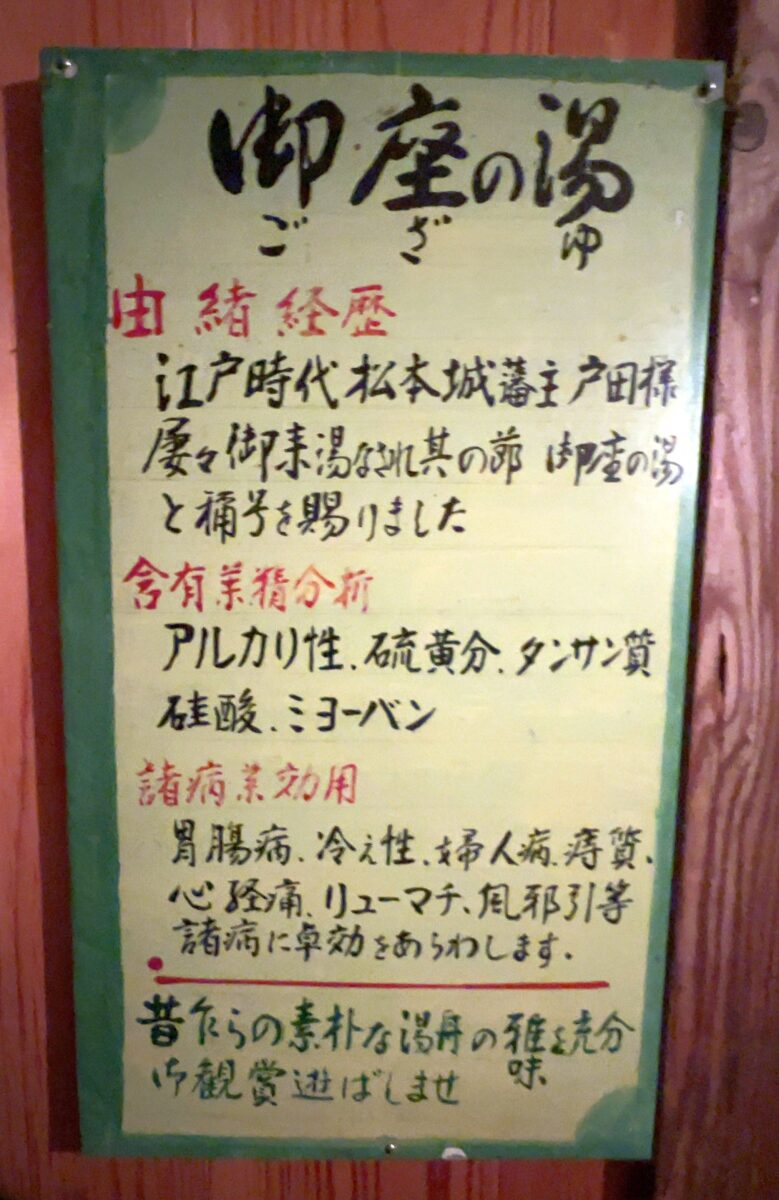 御座の湯
ご ざ ゆ
由緒経歴
江戸時代松本城藩主戸田様
屡々御来湯なされ其の節 御座の湯
と称号を賜りました
含有薬精分析
アルカリ性、硫黄分、タンサン質
硅酸、ミョーバン
諸病薬効用
胃腸病、冷え性、婦人病、痔質、
心経痛、リューマチ、風邪引等
諸病に卓効をあらわします。
昔乍らの素朴な湯舟の雅味を充分
御観賞遊ばしませ